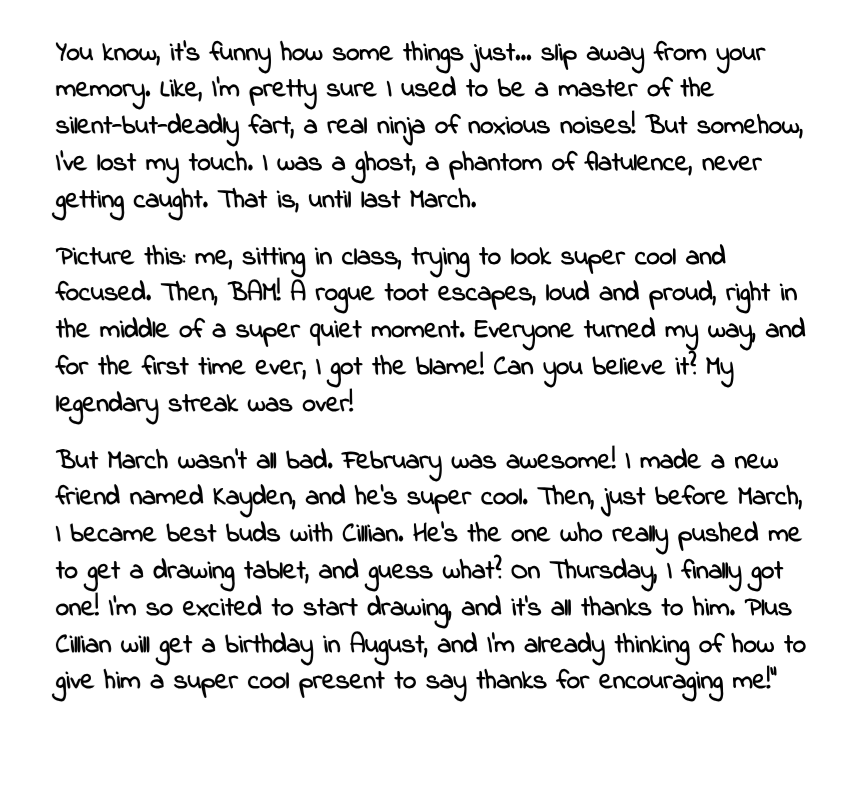 You know, it's funny how some things just... slip away from your
memory. Like, I'm pretty sure I used to be a master of the
silent-but-deadly fart, a real ninja of noxious noises! But somehow,
I've lost my touch. I was a ghost, a phantom of flatulence, never
getting caught. That is, until last March.
Picture this: me, sitting in class, trying to look super cool and
focused. Then, BAM! A rogue toot escapes, loud and proud, right in
the middle of a super quiet moment. Everyone turned my way, and
for the first time ever, I got the blame! Can you believe it? My
legendary streak was over!
But March wasn't all bad. February was awesome! I made a new
friend named Kayden, and he's super cool. Then, just before March,
I became best buds with Cillian. He's the one who really pushed me
to get a drawing tablet, and guess what? On Thursday, I finally got
one! I'm so excited to start drawing, and it's all thanks to him. Plus
Cillian will get a birthday in August, and I'm already thinking of how to
give him a super cool present to say thanks for encouraging me!"